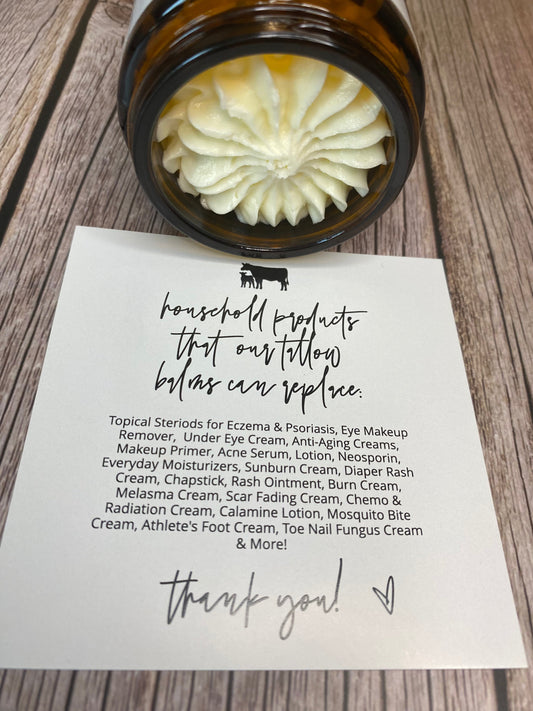 household products
that our tallow
balms can replace:
Topical Steriods for Eczema & Psoriasis, Eye Makeup
Remover,  Under Eye Cream, Anti-Aging Creams,
Makeup Primer, Acne Serum, Lotion, Neosporin,
Everyday Moisturizers, Sunburn Cream, Diaper Rash
Cream, Chapstick, Rash Ointment, Burn Cream,
Melasma Cream, Scar Fading Cream, Chemo &
Radiation Cream, Calamine Lotion, Mosquito Bite
Cream, Athlete's Foot Cream, Toe Nail Fungus Cream
& More!
thank you!